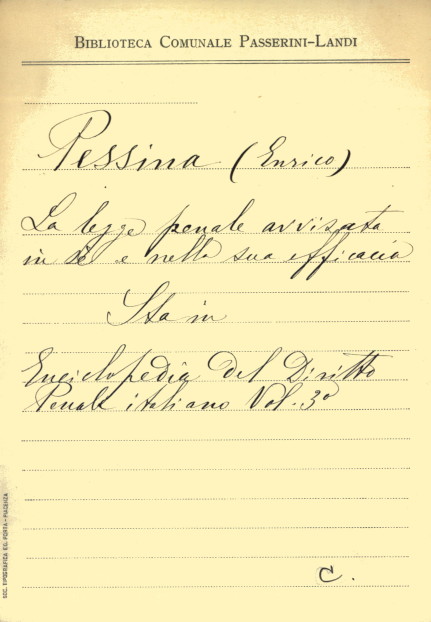 BIBLIOTECA COMUNALE PASSERINI-LANDI
Pessina (Enrico)
La legge penale avvisata
in sè e nella sua efficacia
Sta in
Enciclopedia del Diritto
Penale italiano Vol. 3º
C.
SOC. TIPOGRAFICA EG. PORTA - PIACENZA